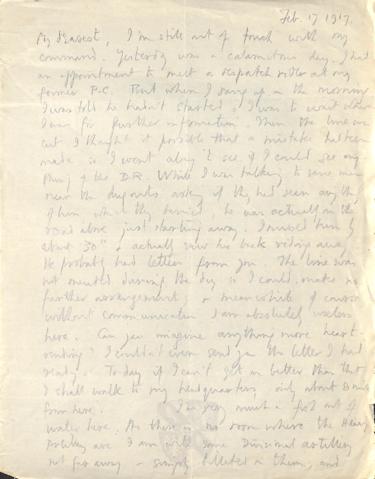 Feb. 17 1917.
My Dearest, I'm still out of touch with my
command. Yesterday was a calamitous day. I had
an appointment to meet a despatch rider at my
former P.C. But when I rang up in the morning
I was told he hadn't started & I was to wait where
I was for further information. Then the line was
cut. I thought it possible that a mistake had been
made & I went along to see if I could see any
thing of the D.R. While I was talking to some men
near the dugouts asking if they had seen anything
of him when they arrived, he was actually on the
road above just starting away. I missed him by
about 30" & actually saw his back riding away.
He probably had letters from you. The line was
not mended during the day so I could make no
further arrangements, & meanwhile of course
without communication I am absolutely useless
here. Can you imagine anything more heart-
rending? I couldn't even send you the letter I had
ready. Today if I can't get on better than that
I shall walk to my headquarters, only about miles
from here. I'm very much a fish out of
water here. As there is no room where the Heavy
Artillery are I am with some Divisional artillery
not far away & simply billeted on them, and